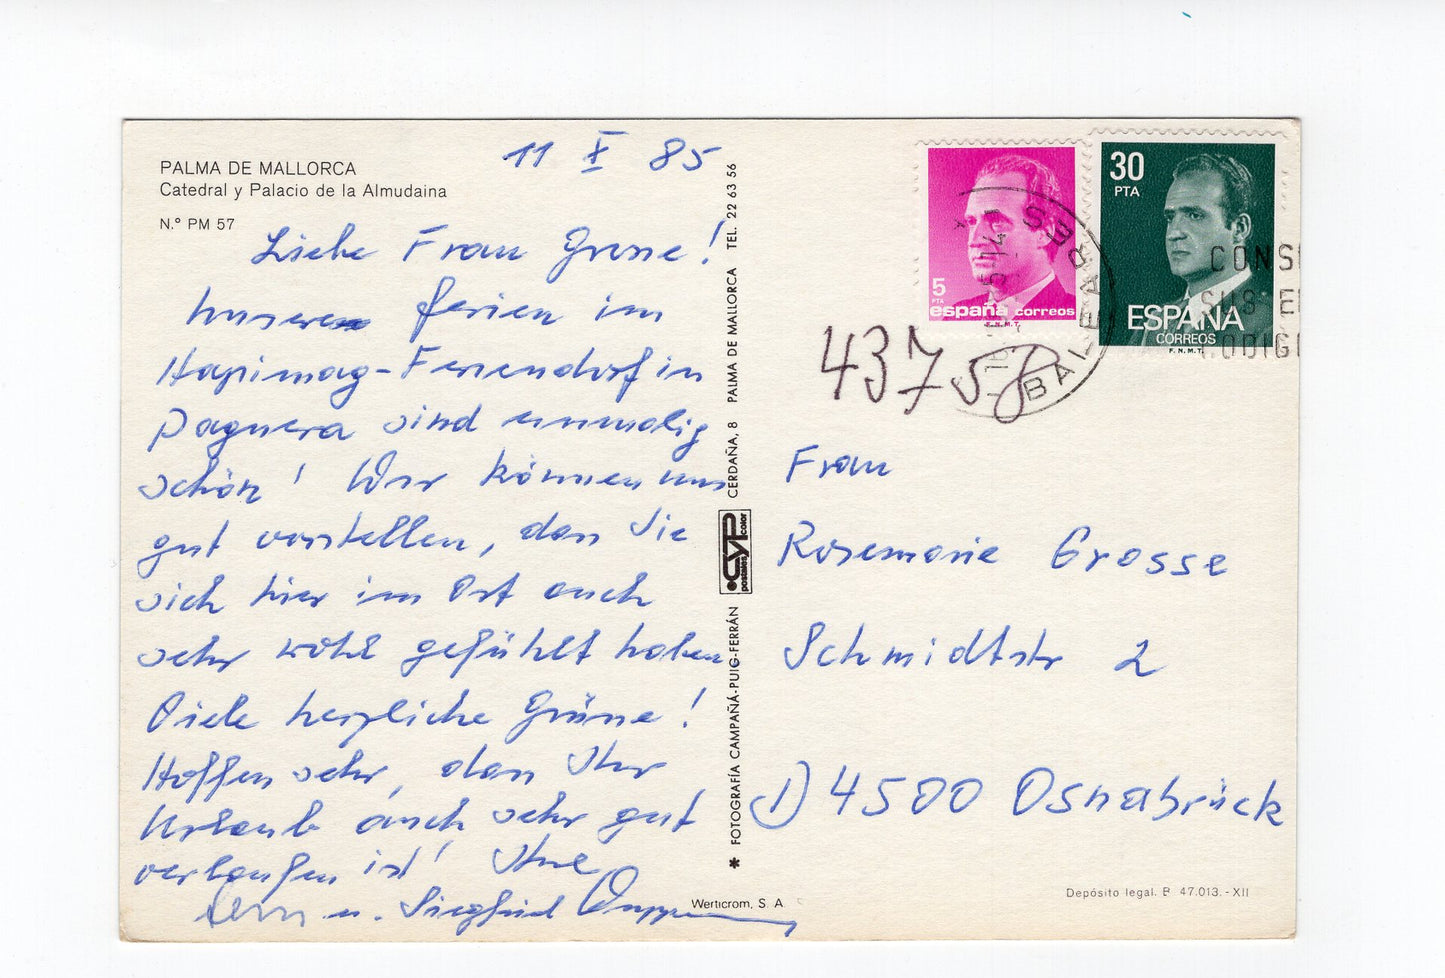 PALMA DE MALLORCA
Catedral y Palacio de la Almudaina
N.º PM 57
11 X 85
Liebe Frau Grosse!
Unsere Ferien im
Hapimag-Feriendorf in
Paguera sind einmalig
schön! Wir können uns
gut vorstellen, dass Sie
sich hier im Ort auch
sehr wohl gefühlt haben
Viele herzliche Grüsse!
Hoffen sehr, dass Ihr
Urlaub auch sehr gut
verlaufen ist! Ihre
u. Siegfried
FOTOGRAFÍA CAMPAÑÁ-PUIG-FERRÁN
postales CYP color
CERDAÑA, 8 PALMA DE MALLORCA TEL. 22 63 56
Werticrom, S. A.
5
PTA
españa correos
F.N.M.T.
30
PTA
ESPAÑA
CORREOS
F.N.M.T.
BALEARES
CONSI
SUS E
CODIG
43758
Frau
Rosemarie Grosse
Schmidtstr 2
D) 4500 Osnabrück
Depósito legal. B 47.013. - XII